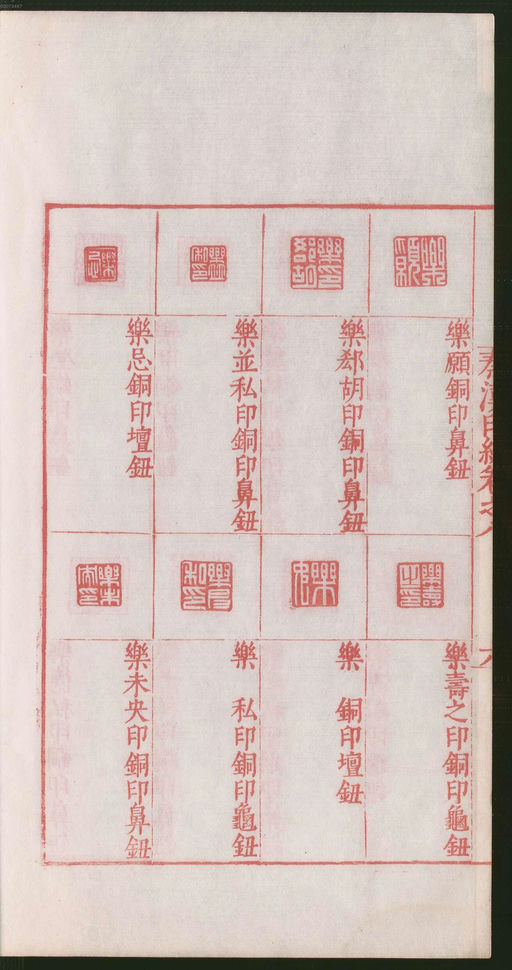 樂願銅印鼻鈕
樂郄胡印銅印鼻鈕
樂並私印銅印鼻鈕
樂忌銅印壇鈕
樂壽之印銅印龜鈕
樂　銅印壇鈕
樂　私印銅印龜鈕
樂未央印銅印鼻鈕